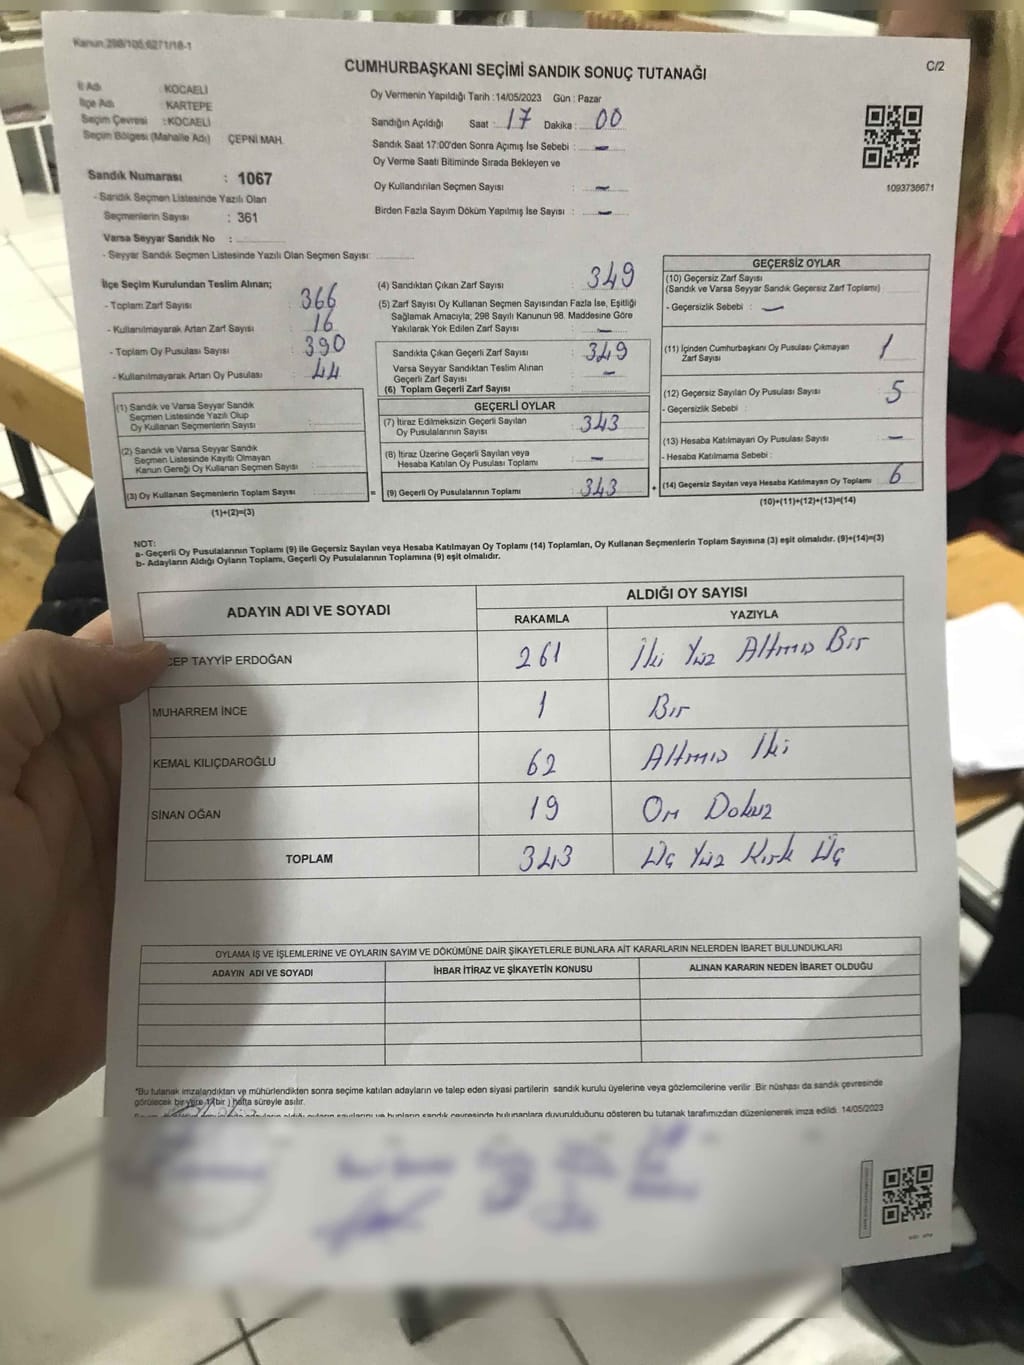 Kanun.298/105.6271/18-1
C/2
CUMHURBAŞKANI SEÇİMİ SANDIK SONUÇ TUTANAĞI
İl Adı : KOCAELİ
İlçe Adı : KARTEPE
Seçim Çevresi : KOCAELİ
Seçim Bölgesi (Mahalle Adı) ÇEPNİ MAH.
Sandık Numarası : 1067
- Sandık Seçmen Listesinde Yazılı Olan
Seçmenlerin Sayısı : 361
Varsa Seyyar Sandık No :
- Seyyar Sandık Seçmen Listesinde Yazılı Olan Seçmen Sayısı:
Oy Vermenin Yapıldığı Tarih :14/05/2023 Gün : Pazar
Sandığın Açıldığı Saat : 17 Dakika : 00
Sandık Saat 17:00'den Sonra Açımış İse Sebebi : —
Oy Verme Saati Bitiminde Sırada Bekleyen ve
Oy Kullandırılan Seçmen Sayısı : —
Birden Fazla Sayım Döküm Yapılmış İse Sayısı : —
1093736671
İlçe Seçim Kurulundan Teslim Alınan;
- Toplam Zarf Sayısı : 366
- Kullanılmayarak Artan Zarf Sayısı : 16
- Toplam Oy Pusulası Sayısı : 390
- Kullanılmayarak Artan Oy Pusulası : 44
(1) Sandık ve Varsa Seyyar Sandık
Seçmen Listesinde Yazılı Olup
Oy Kullanan Seçmenlerin Sayısı :
(2) Sandık ve Varsa Seyyar Sandık
Seçmen Listesinde Kayıtlı Olmayan
Kanun Gereği Oy Kullanan Seçmen Sayısı :
(3) Oy Kullanan Seçmenlerin Toplam Sayısı :
(1)+(2)=(3)
(4) Sandıktan Çıkan Zarf Sayısı : 349
(5) Zarf Sayısı Oy Kullanan Seçmen Sayısından Fazla İse, Eşitliği
Sağlamak Amacıyla; 298 Sayılı Kanunun 98. Maddesine Göre
Yakılarak Yok Edilen Zarf Sayısı : —
Sandıkta Çıkan Geçerli Zarf Sayısı : 349
Varsa Seyyar Sandıktan Teslim Alınan
Geçerli Zarf Sayısı : —
(6) Toplam Geçerli Zarf Sayısı :
GEÇERLİ OYLAR
(7) İtiraz Edilmeksizin Geçerli Sayılan
Oy Pusulalarının Sayısı : 343
(8) İtiraz Üzerine Geçerli Sayılan veya
Hesaba Katılan Oy Pusulası Toplamı : —
= (9) Geçerli Oy Pusulalarının Toplamı : 343
GEÇERSİZ OYLAR
(10) Geçersiz Zarf Sayısı
(Sandık ve Varsa Seyyar Sandık Geçersiz Zarf Toplamı)
- Geçersizlik Sebebi : —
(11) İçinden Cumhurbaşkanı Oy Pusulası Çıkmayan
Zarf Sayısı 1
(12) Geçersiz Sayılan Oy Pusulası Sayısı 5
- Geçersizlik Sebebi :
(13) Hesaba Katılmayan Oy Pusulası Sayısı —
- Hesaba Katılmama Sebebi :
+ (14) Geçersiz Sayılan veya Hesaba Katılmayan Oy Toplamı 6
(10)+(11)+(12)+(13)=(14)
NOT:
a- Geçerli Oy Pusulalarının Toplamı (9) ile Geçersiz Sayılan veya Hesaba Katılmayan Oy Toplamı (14) Toplamları, Oy Kullanan Seçmenlerin Toplam Sayısına (3) eşit olmalıdır. (9)+(14)=(3)
b- Adayların Aldığı Oyların Toplamı, Geçerli Oy Pusulalarının Toplamına (9) eşit olmalıdır.
ADAYIN ADI VE SOYADI
ALDIĞI OY SAYISI
RAKAMLA YAZIYLA
CEP TAYYİP ERDOĞAN 261 İki Yüz Altmış Bir
MUHARREM İNCE 1 Bir
KEMAL KILIÇDAROĞLU 62 Altmış İki
SİNAN OĞAN 19 On Dokuz
TOPLAM 343 Üç Yüz Kırk Üç
OYLAMA İŞ VE İŞLEMLERİNE VE OYLARIN SAYIM VE DÖKÜMÜNE DAİR ŞİKAYETLERLE BUNLARA AİT KARARLARIN NELERDEN İBARET BULUNDUKLARI
ADAYIN ADI VE SOYADI İHBAR İTİRAZ VE ŞİKAYETİN KONUSU ALINAN KARARIN NEDEN İBARET OLDUĞU
*Bu tutanak imzalandıktan ve mühürlendikten sonra seçime katılan adayların ve talep eden siyasi partilerin sandık kurulu üyelerine veya gözlemcilerine verilir. Bir nüshası da sandık çevresinde
görülecek bir yere 1 (bir ) hafta süreyle asılır.
sandık çevresinde bulunanlara duyurulduğunu gösteren bu tutanak tarafımızdan düzenlenerek imza edildi. 14/05/2023